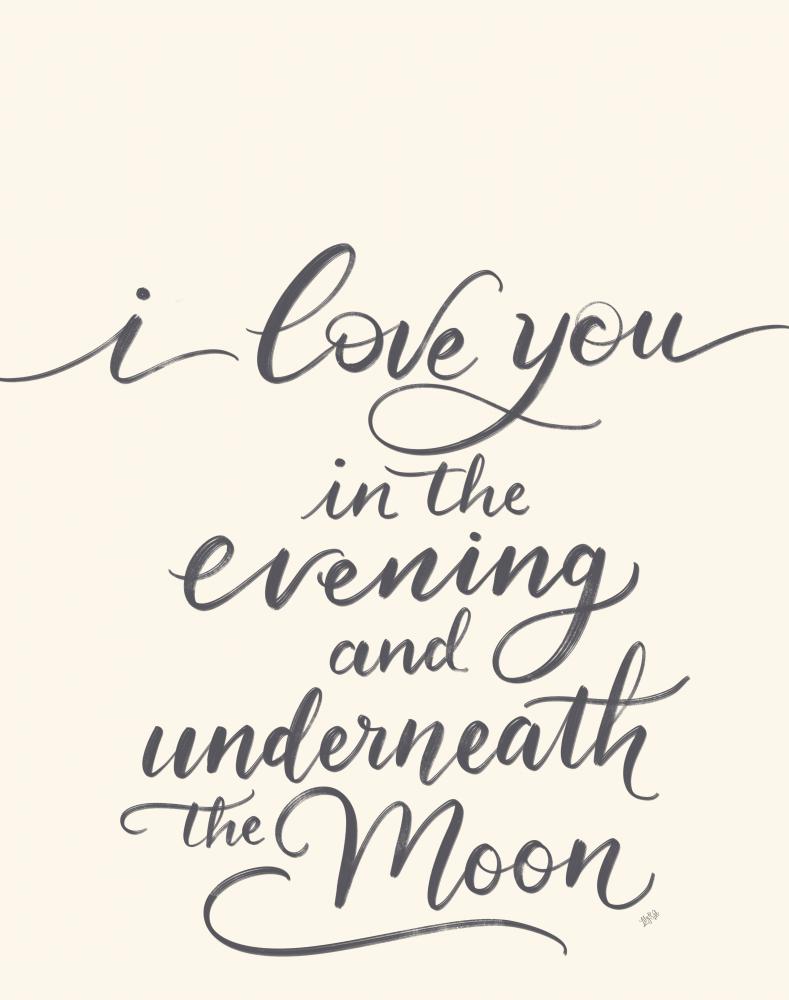 i love you
in the
evening
and
underneath
the Moon